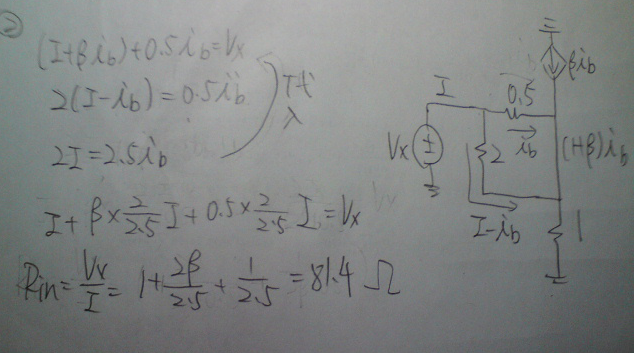 ②
(I+βi_b)+0.5i_b=Vx
2(I-i_b)=0.5i_b
代
入
2I=2.5i_b
I+β×\frac{2}{2.5}I+0.5×\frac{2}{2.5}I=Vx
Rin=\frac{Vx}{I}=1+\frac{2β}{2.5}+\frac{1}{2.5}=81.4 Ω
βi_b
I
0.5
i_b
Vx
2
(1+β)i_b
I-i_b
1